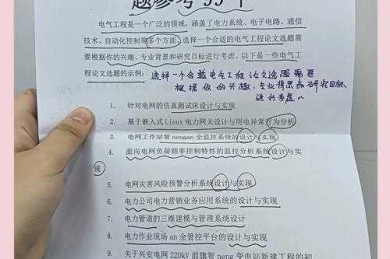 题参考 99 个
电气工程是一个广泛的领域，涵盖了电力系统、电子电路、通信
技术、自动化控制等多个方面。选择一个合适的电气工程论文选题需
要根据你的兴趣、专业背景和研究目标进行考虑。以下是一些电气工
程论文选题的示例：
选择一个合适电气工程论文选题需要
根据你的兴趣、专业背景和研究目标
进行考虑
1. 针对电网的仿真测试床设计与实现
2. 基于嵌入式 Linux 电力网关设计与用电异常行为分析
3. 电网工作站智 nengan 全监控系统的设计与实现
4. 面向电网负荷频率控制特性的监控分析系统设计与实
现
5. 电网灾害风险预警分析系统设计与实现
6. 电力公司电力营销业务应用系统的设计与实现
7. 电力管道的三维建模与管理系统设计
8. 电力作业现场 an 全管控平台的设计与实现
9. 关于兴安电网 220kV 前旗智 neng 变电站新建工程的初